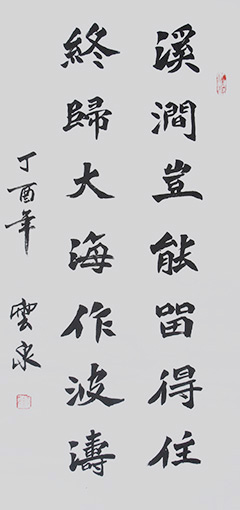 溪澗豈能留得住
終歸大海作波濤
丁酉年 雲泉